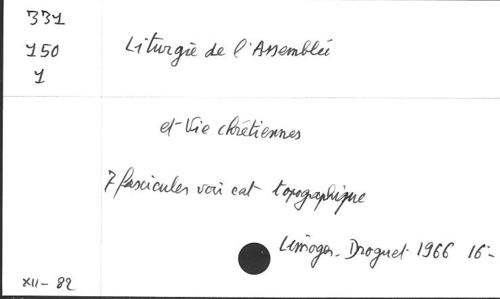 331
150
1
Liturgie de l'Assemblée
et Vie chrétiennes
7 fascicules voir cat topographique
Limoges. Droguet 1966 16°-
XII - 82